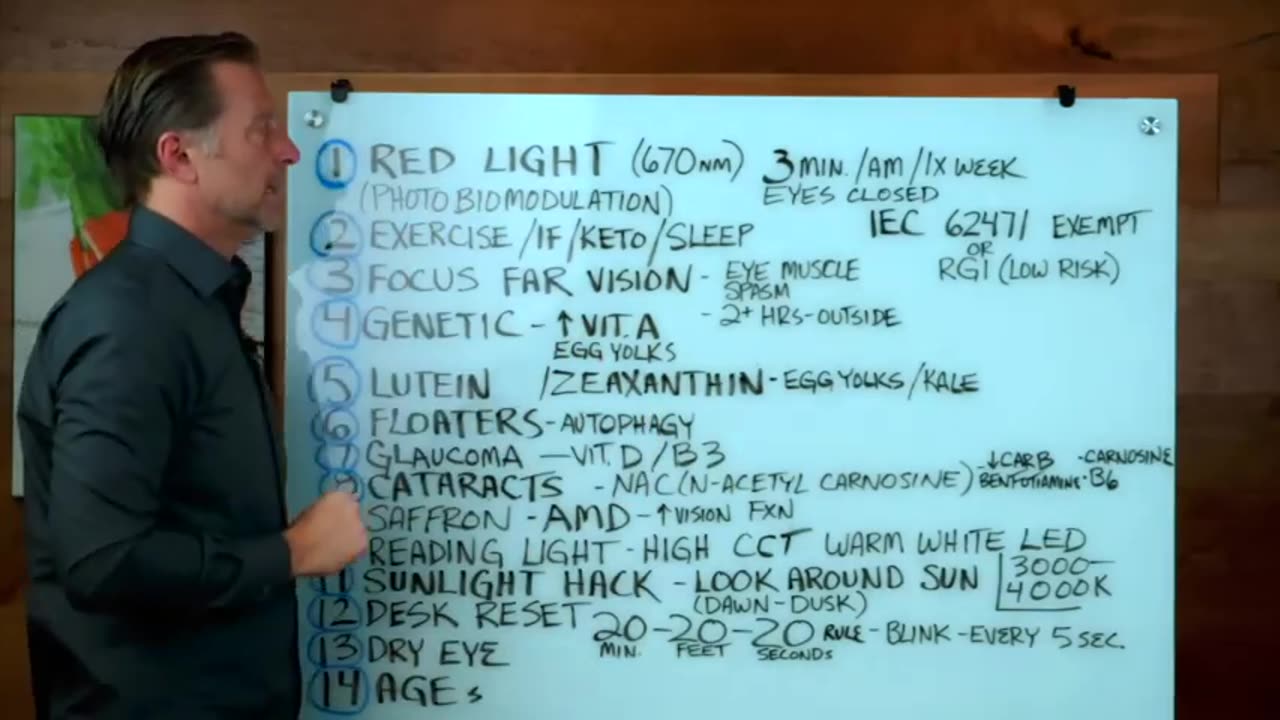 1 RED LIGHT (670NM) 3 MIN./AM/1X WEEK
(PHOTOBIOMODULATION) EYES CLOSED
2 EXERCISE/IF/KETO/SLEEP IEC 62471 EXEMPT
OR
3 FOCUS FAR VISION - EYE MUSCLE RG1 (LOW RISK)
SPASM
4 GENETIC - ↑ VIT. A - 2+ HRS-OUTSIDE
EGG YOLKS
5 LUTEIN /ZEAXANTHIN - EGG YOLKS/KALE
6 FLOATERS - AUTOPHAGY
7 GLAUCOMA — VIT. D/B3
8 CATARACTS - NAC (N-ACETYL CARNOSINE) - ↓CARB - CARNOSINE
BENFOTIAMINE - B6
SAFFRON - AMD - ↑ VISION FXN
READING LIGHT - HIGH CCT WARM WHITE LED
3000-
11 SUNLIGHT HACK - LOOK AROUND SUN 4000K
(DAWN-DUSK)
12 DESK RESET 20-20-20 RULE - BLINK - EVERY 5 SEC.
MIN. FEET SECONDS
13 DRY EYE
14 AGE s